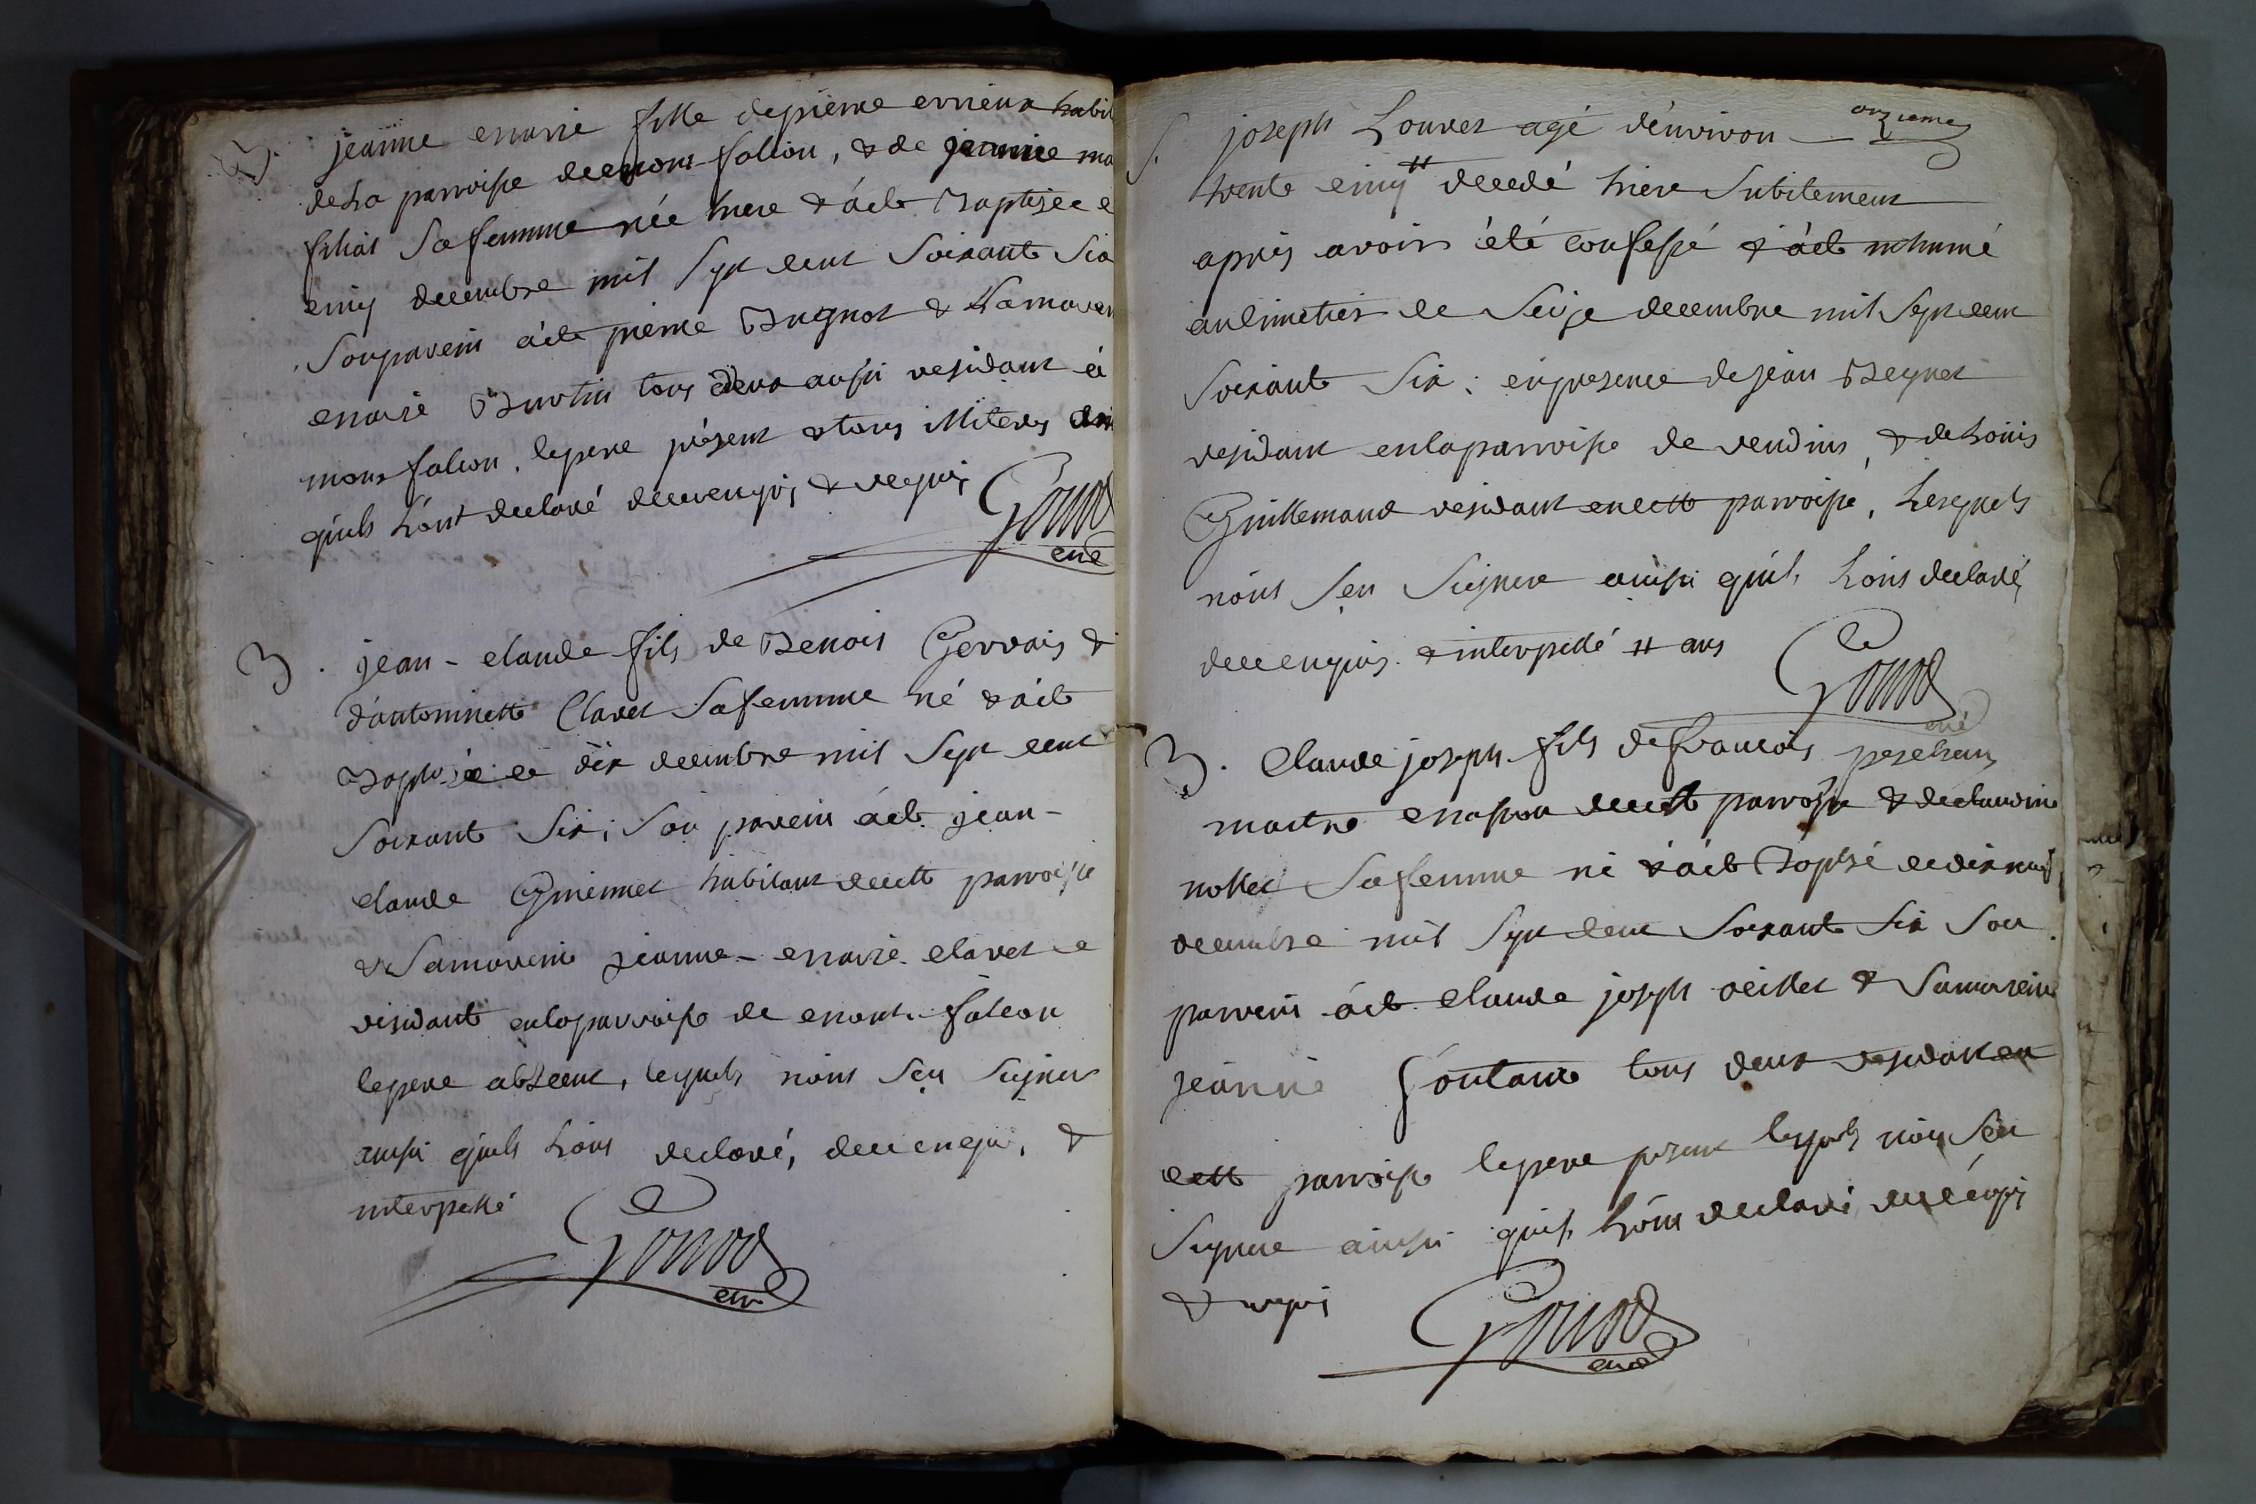 B. jeanne marie fille de pierre merieux habit
de la parroisse de mont falcon, & de jeanne ma
filiat sa femme née hiere & a été Baptisée
cinq decembre mil sept cent soixante six
son parein a été pierre Bugnot & sa marein
marie Burtin tous deux aussi residant à
mont falcon, le pere présent & tous illiteres
qu'ils l'ont declaré de ce enquis & requis Gonod
curé
B. jean-claude fils de Benois Gervais &
d'antoinette Clavet sa femme né & a été
Baptisé le dix decembre mil sept cent
soixante six; son parein a été jean-
claude Guiennet habitant de cette parroisse
& sa mareine jeanne-marie clavet re
residante en la parroisse de mont-falcon
le pere absent, lequels n'ont seu signer
ainsi qu'ils l'ont declaré, de ce enquis, &
interpellé
Gonod
curé
onzieme
S. joseph Louvet agé d'environ
trente cinq # decedé hiere subitement
après avoir été confessé & a été inhumé
au cimetier le seize decembre mil sept cent
soixante six; en presence de jean Beynet
residant en la parroisse de vendins, & de Louis
Guillemaud residant en cette parroise, lesquels
n'ont seu signere ainsi qu'ils l'ont declaré,
de ce enquis & interpellé # ans
Gonod
curé
B. Claude joseph fils de francois
maitre masson de cette parroisse & de claudine
nollet sa femme né & a été Baptisé le dix neuf
decembre mil sept cent soixante six son
parrein a été claude joseph & sa mareine
jeanne fontaine tous deux residant en
cette parroisse le pere present lesquels n'on seu
signere ainsi qu'ils l'ont declaré de ce enquis
& requis
Gonod
curé